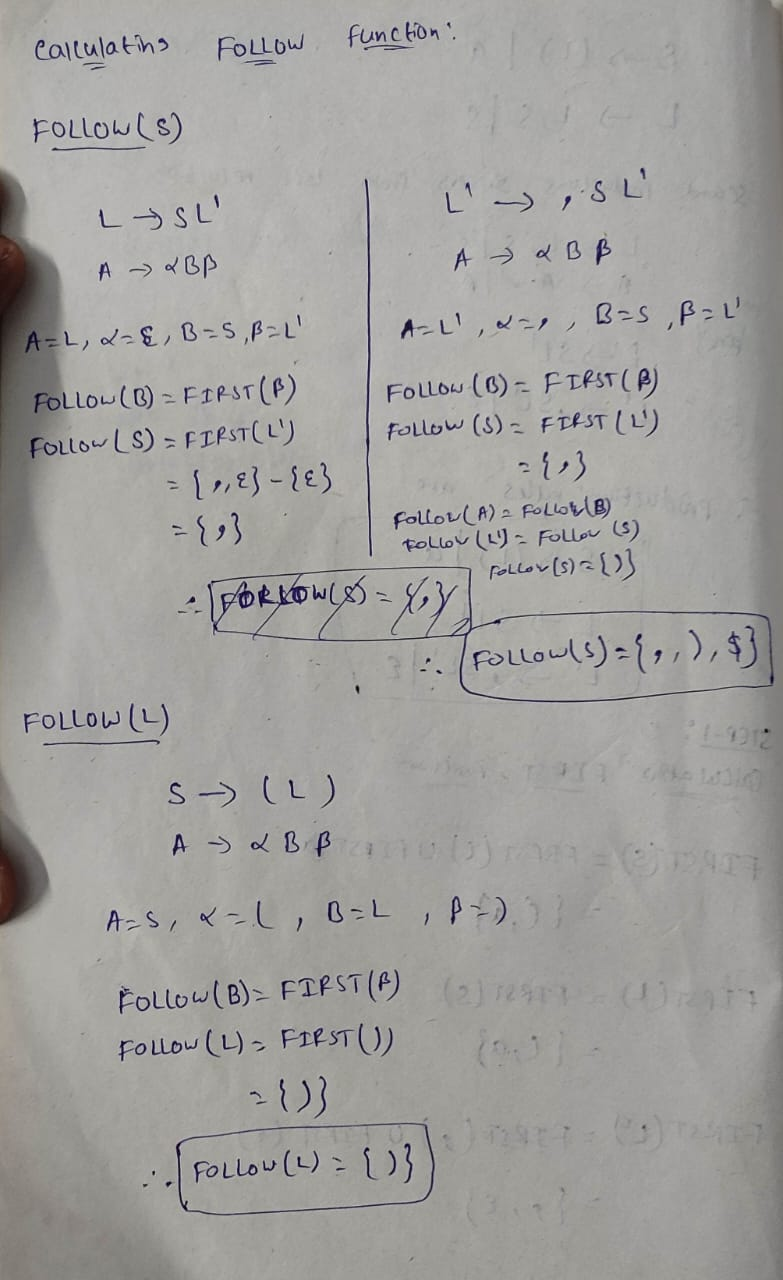 Calculating FOLLOW function:
FOLLOW(S)
L → SL'
A → αBβ
A=L, α=ε, B=S, β=L'
FOLLOW(B) = FIRST(β)
FOLLOW(S) = FIRST(L')
= {,,ε}-{ε}
= {,}
L' → ,SL'
A → αBβ
A=L', α=, , B=S, β=L'
FOLLOW(B) = FIRST(β)
FOLLOW(S) = FIRST(L')
= {,}
FOLLOW(A) = FOLLOW(B)
FOLLOW(L') = FOLLOW(S)
FOLLOW(S) = {)}
∴ FOLLOW(S) = {,}
∴ FOLLOW(S) = {,,),$}
FOLLOW(L)
S → (L)
A → αBβ
A=S, α=(, B=L, β=)
FOLLOW(B) = FIRST(β)
FOLLOW(L) = FIRST())
= {)}
∴ FOLLOW(L) = {)}